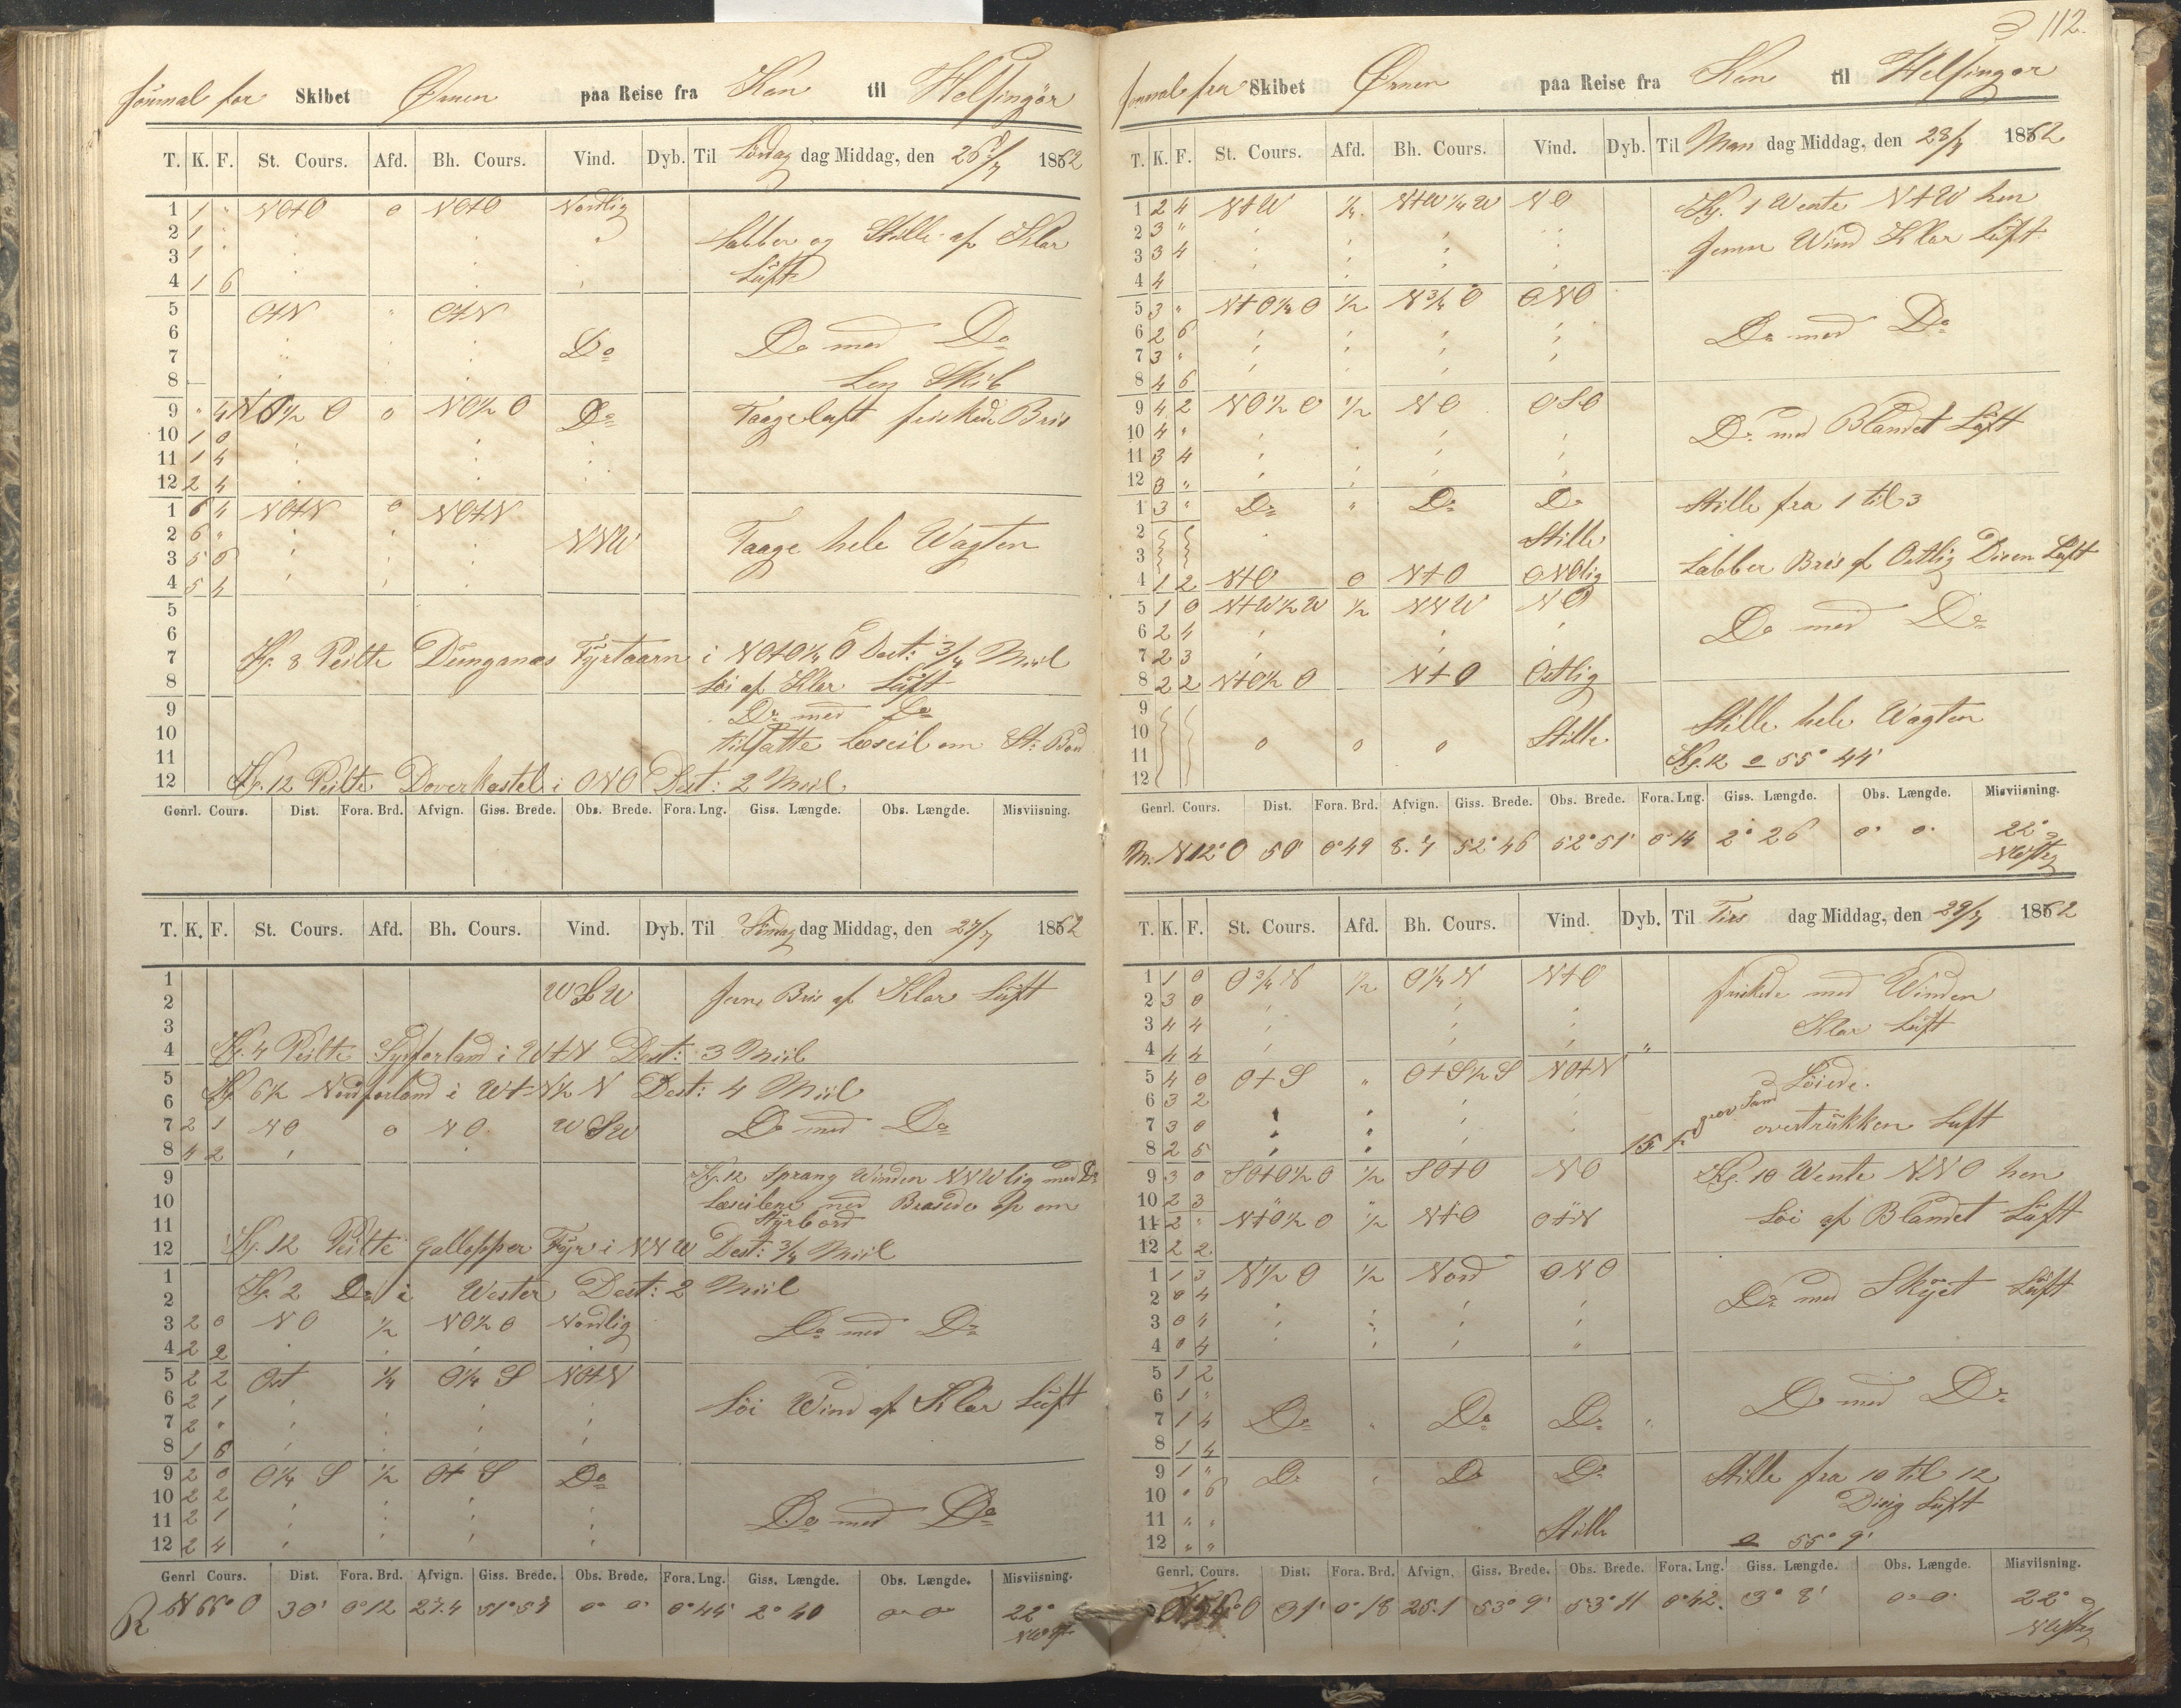 112.
Journal for Skibet Ørnen paa Reise fra Kan til Helsingør
T. K. F. St. Cours. Afd. Bh. Cours. Vind. Dyb. Til Löver dag Middag, den 26/7 1862
1 1 " NOtO 0 NOtO Nordlig
2 1 "
3 1 " Labber og Stille af Klar
4 1 6 Luft
5 OtN " OtN
6
7 Do Do med Do
8 Lens Skib
9 " 4 NO½O 0 NO½O Do Taageluft friskede Bris
10 1 0
11 1 4
12 2 4
1 6 4 NOtN 0 NOtN
2 6 " NNW Taage hele Wagten
3 5 6
4 5 4
5
6
7 Kl. 8 Peilte Dungenes Fyrtaarn i NOtO¼O Dest: ¾ Miil
8 Löi af Klar Luft
9 Do med Do
10 tilsatte Læseil om St: Bord
11
12 Kl. 12 Peilte Dover Kastel i ONO Dest: 2 Miil
Genrl. Cours. Dist. Fora. Brd. Afvign. Giss. Brede. Obs. Brede. Fora. Lng. Giss. Længde. Obs. Længde. Misviisning.
T. K. F. St. Cours. Afd. Bh. Cours. Vind. Dyb. Til Söndag dag Middag, den 27/7 1862
1 WSW Jevn Bris af Klar Luft
2
3
4 Kl. 4 Peilte Sydforland i WtN Dest: 3 Miil
5 Kl 6½ Nordforland i WtN½N Dest: 4 Miil
6
7 2 1 NO 0 NO WSW Do med Do
8 4 2
9 Kl. 12 Sprang Winden NNWlig med Do
10 Læseilene ned Brasede op om
11 Styrbord
12 Kl. 12 Peilte Gallopper Fyr i NNW Dest: ¾ Miil
1 Kl. 2 Do i Wester Dest: 2 Miil
2
3 2 0 NO ½ NO½O Nordlig Do med Do
4 2 2
5 2 2 Ost ¼ O¼S NOtN
6 2 1 Löi Wind af Klar Luft
7 2 "
8 1 6
9 2 0 O¼S ½ OtS Do
10 2 2
11 2 1 Do med Do
12 2 4
Genrl Cours. Dist. Fora. Brd. Afvign. Giss. Brede. Obs. Brede. Fora. Lng. Giss. Længde. Obs. Længde. Misviisning.
R N66°O 30' 0°12 27.4 51°57 0° 0' 0°44' 2° 40 0° 0° 22°
Journal fra Skibet Ørnen paa Reise fra Kan til Helsingør
T. K. F. St. Cours. Afd. Bh. Cours. Vind. Dyb. Til Man dag Middag, den 28/7 1862
1 2 4 NtW ¼ NtW¼W NO Kl. 1 Wente NtW hen
2 3 "
3 3 4 Jevn Wind Klar Luft
4 4
5 3 " NtO¼O ½ N¾O ONO
6 2 6 Do med Do
7 3 "
8 4 6
9 4 2 NO½O ½ NO OSO
10 4 " Do med Blandet Luft
11 3 4
12 3 "
1 3 " Do " Do Do Stille fra 1 til 3
2 Stille
3 Labber Bris af Ostlig Disen Luft
4 1 2 NtO 0 NtO ONOlig
5 1 0 NtW½W ½ NNW NO
6 2 4 Do med Do
7 2 3
8 2 2 NtO½O NtO Ostlig
9
10 0 0 0 Stille Stille hele Wagten
11 Kl. 12 55° 44'
12
Genrl. Cours. Dist. Fora. Brd. Afvign. Giss. Brede. Obs. Brede. Fora. Lng. Giss. Længde. Obs. Længde. Misviisning.
M. N12°O 50' 0°49 8.7 52°46 52°51' 0°14 2° 26 0° 0' 22°
T. K. F. St. Cours. Afd. Bh. Cours. Vind. Dyb. Til Tirs dag Middag, den 29/7 1862
1 1 0 O¾N ½ O¼N NtO
2 3 0 friskede med Winden
3 4 4 Klar Luft
4 4 4 "
5 4 0 OtS " OtS½S NOtN Löiede
6 3 2
7 3 0 overtrükken Luft
8 2 5 15 f. grov Sand
9 3 0 SOtO½O ½ SOtO NO Kl. 10 Wente NNO hen
10 2 3
11 2 " NtO½O ½ NtO OtN Löi af Blandet Luft
12 2 2
1 1 3 N½O ½ Nord ONO
2 0 4 Do med Skyet Luft
3 0 4
4 0 4
5 1 2
6 1 " Do med Do
7 1 4 Do " Do Do "
8 1 4
9 1 " Do Do Do Stille fra 10 til 12
10 " 6 Disig Luft
11 " " Stille
12 " " 55° 9'
Genrl. Cours. Dist. Fora. Brd. Afvign. Giss. Brede. Obs. Brede. Fora. Lng. Giss. Længde. Obs. Længde. Misviisning.
31' 0°18 25.1 53°9' 53°11 0°42. 3° 8' 0° 0' 22°